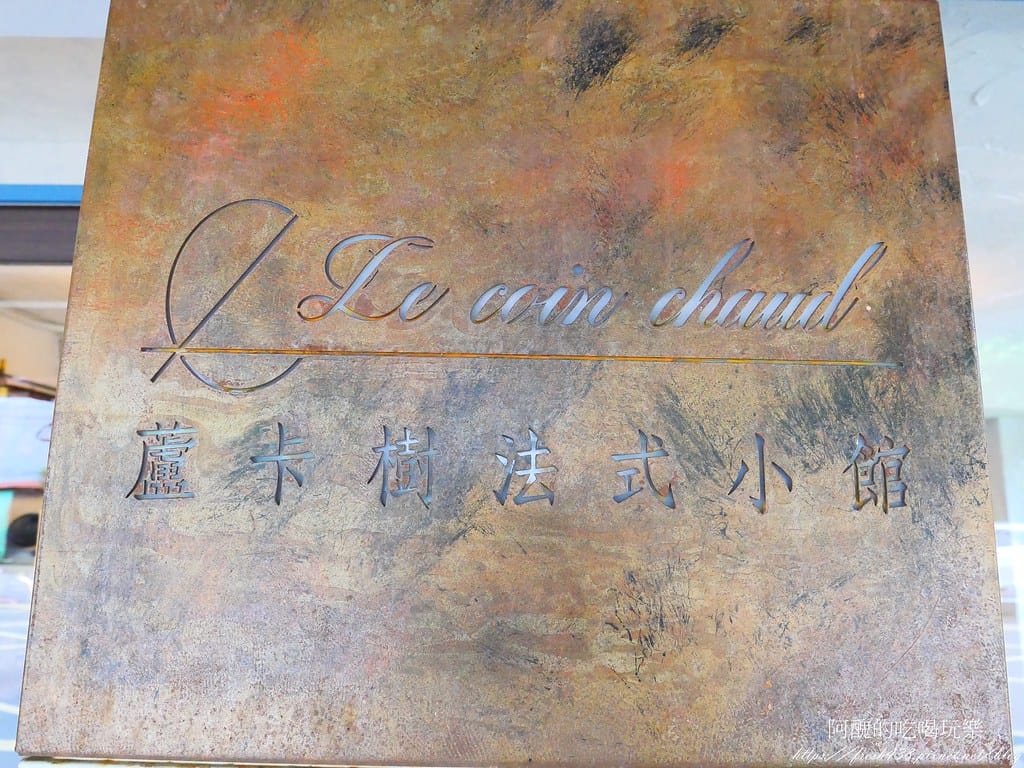 Le coin chaud
蘆卡樹法式小館
阿醜的吃喝玩樂